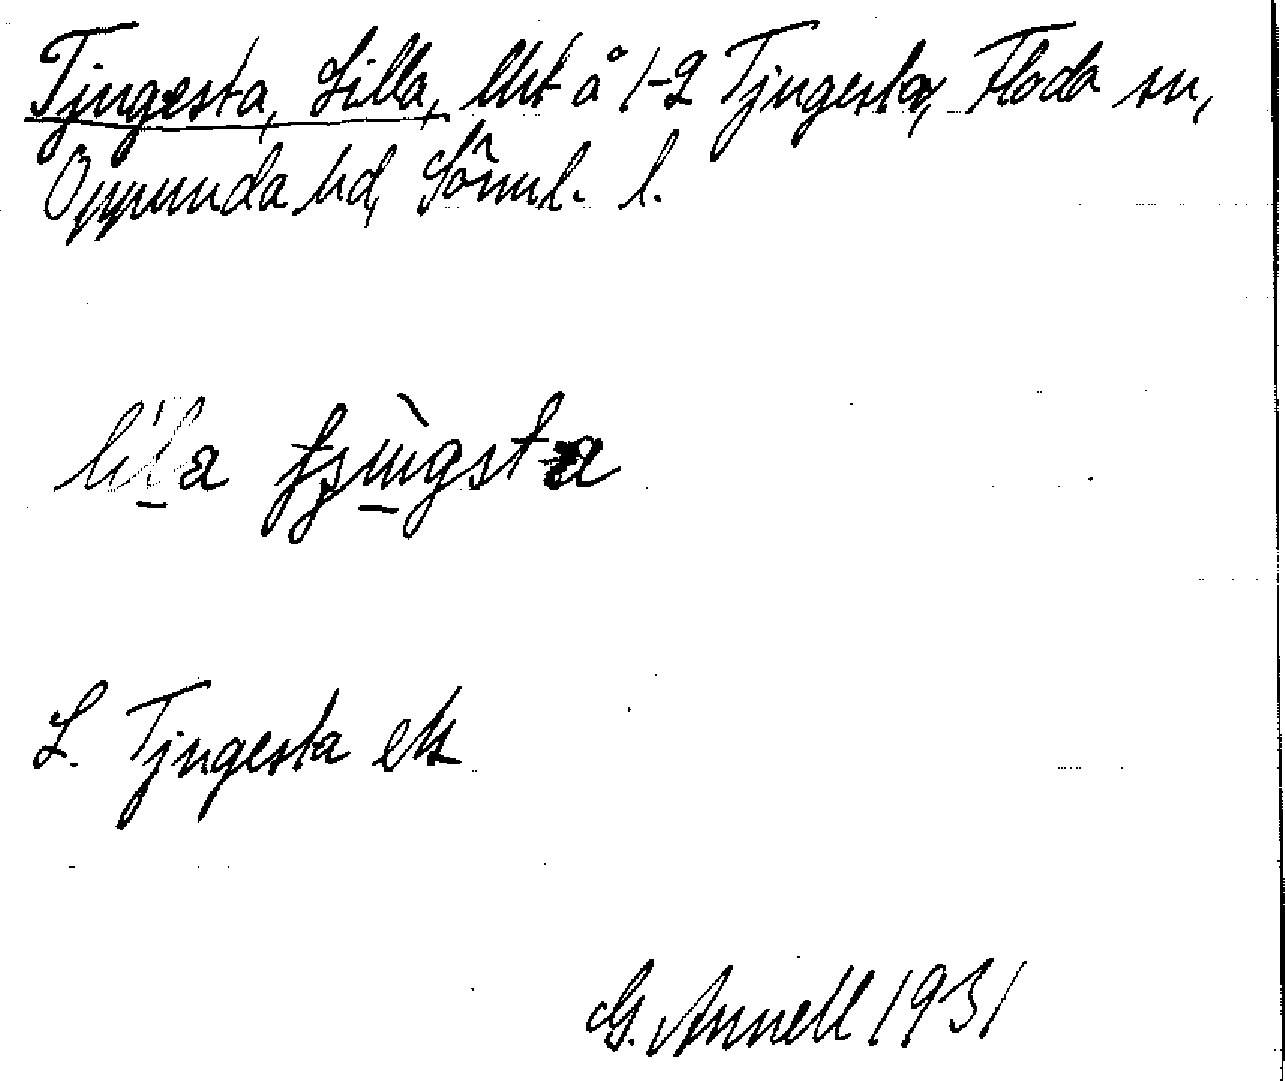 Tjugesta, Lilla, lht å 1-2 Tjugesta, Floda sn,
Oppunda hd, Söml. l.
lilla tjùgsta
L. Tjugesta ek
G. Annell 1931